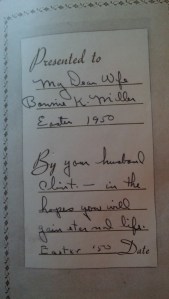 Presented to
My Dear Wife
Bonnie K. Miller
Easter 1950
By your husband
Clint. — in the
hopes you will
gain eternal life.
Easter '50 Date